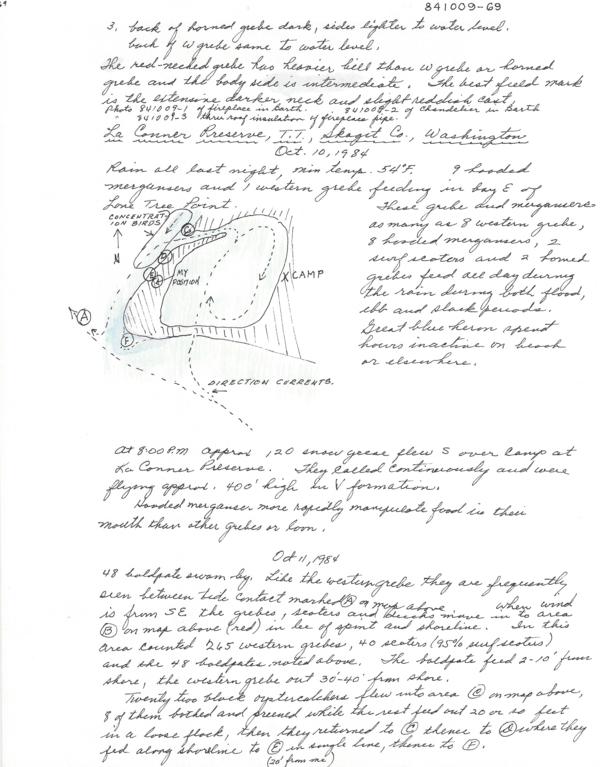 841009-69
3. back of horned grebe dark, sides lighter to water level.
back of w grebe same to water level.
The red-necked grebe has heavier bill than w grebe or horned
grebe and the body side is intermediate. The best field mark
is the extensive darker neck and slight reddish cast.
Photo 841009-1 of fireplace in Barth. 841009-2 of chandelier in Barth
" 841009-3 thru roof insulation of fireplace pipe.
La Conner Preserve, T.T., Skagit Co., Washington
Oct. 10, 1984
Rain all last night, min temp. 54°F. 9 hooded
mergansers and 1 western grebe feeding in bay E of
Lone Tree Point.
CONCENTRAT-
ION BIRDS
N
MY
POSITION
X CAMP
A
F
DIRECTION CURRENTS.
These grebe and mergansers
as many as 8 western grebe,
8 hooded mergansers, 2
surf scoters and 2 horned
grebes feed all day during
the rain during both flood,
ebb and slack periods.
Great blue heron spent
hours inactive on beach
or elsewhere.
At 8:00 P.M approx 120 snow geese flew S over camp at
La Conner Preserve. They called continuously and were
flying approx. 400' high in V formation.
Hooded merganser more rapidly manipulate food in their
mouth than other grebes or loon.
Oct 11, 1984
48 baldpate swam by. Like the western grebe they are frequently
seen between tide contact marked A on map above. When wind
is from SE the grebes, scoters and ducks move in to area
B on map above (red) in lee of spint and shoreline. In this
area counted 265 western grebes, 40 scoters (95% surf scoters)
and the 48 baldpates noted above. The baldpate feed 2-10' from
shore, the western grebe out 30'-40' from shore.
Twenty two black oystercatchers flew into area C on map above,
8 of them bathed and preened while the rest fed out 20 or so feet
in a loose flock, then they returned to C thence to D where they
fed along shoreline to E in single line, thence to F.
(20' from me)